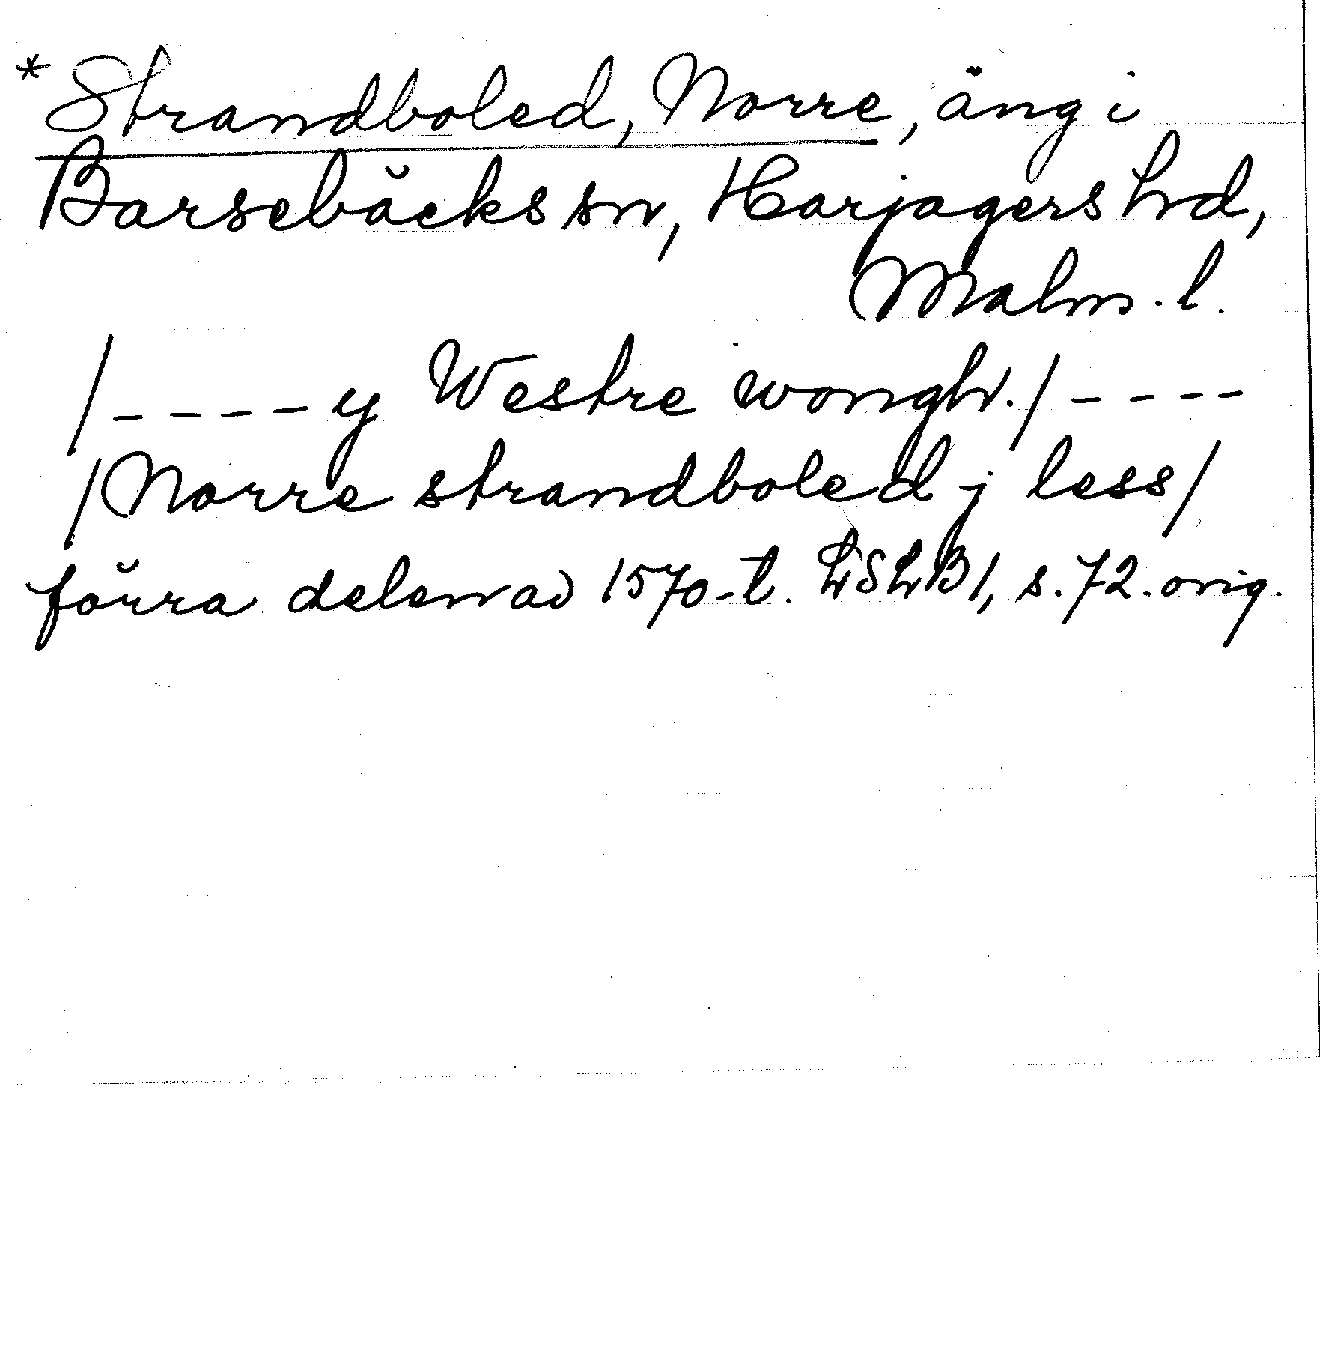 * Strandboled, Norre, äng i
Barsebäcks sn, Harjagers hd,
Malm. l.
/ - - - - y Westre wongh. / - - - -
/ Norre strandboled j less /
förra delen av 1570-t. LSLB 1, s. 72. orig.